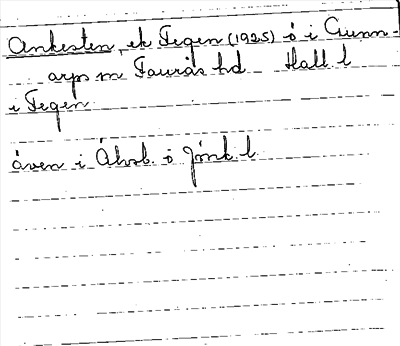 Ankesten, ek Tegen (1925) ö i Gunn-
arp sn Faurås hd Hall l
i Tegen
även i Åhsb. ö Jönk. l